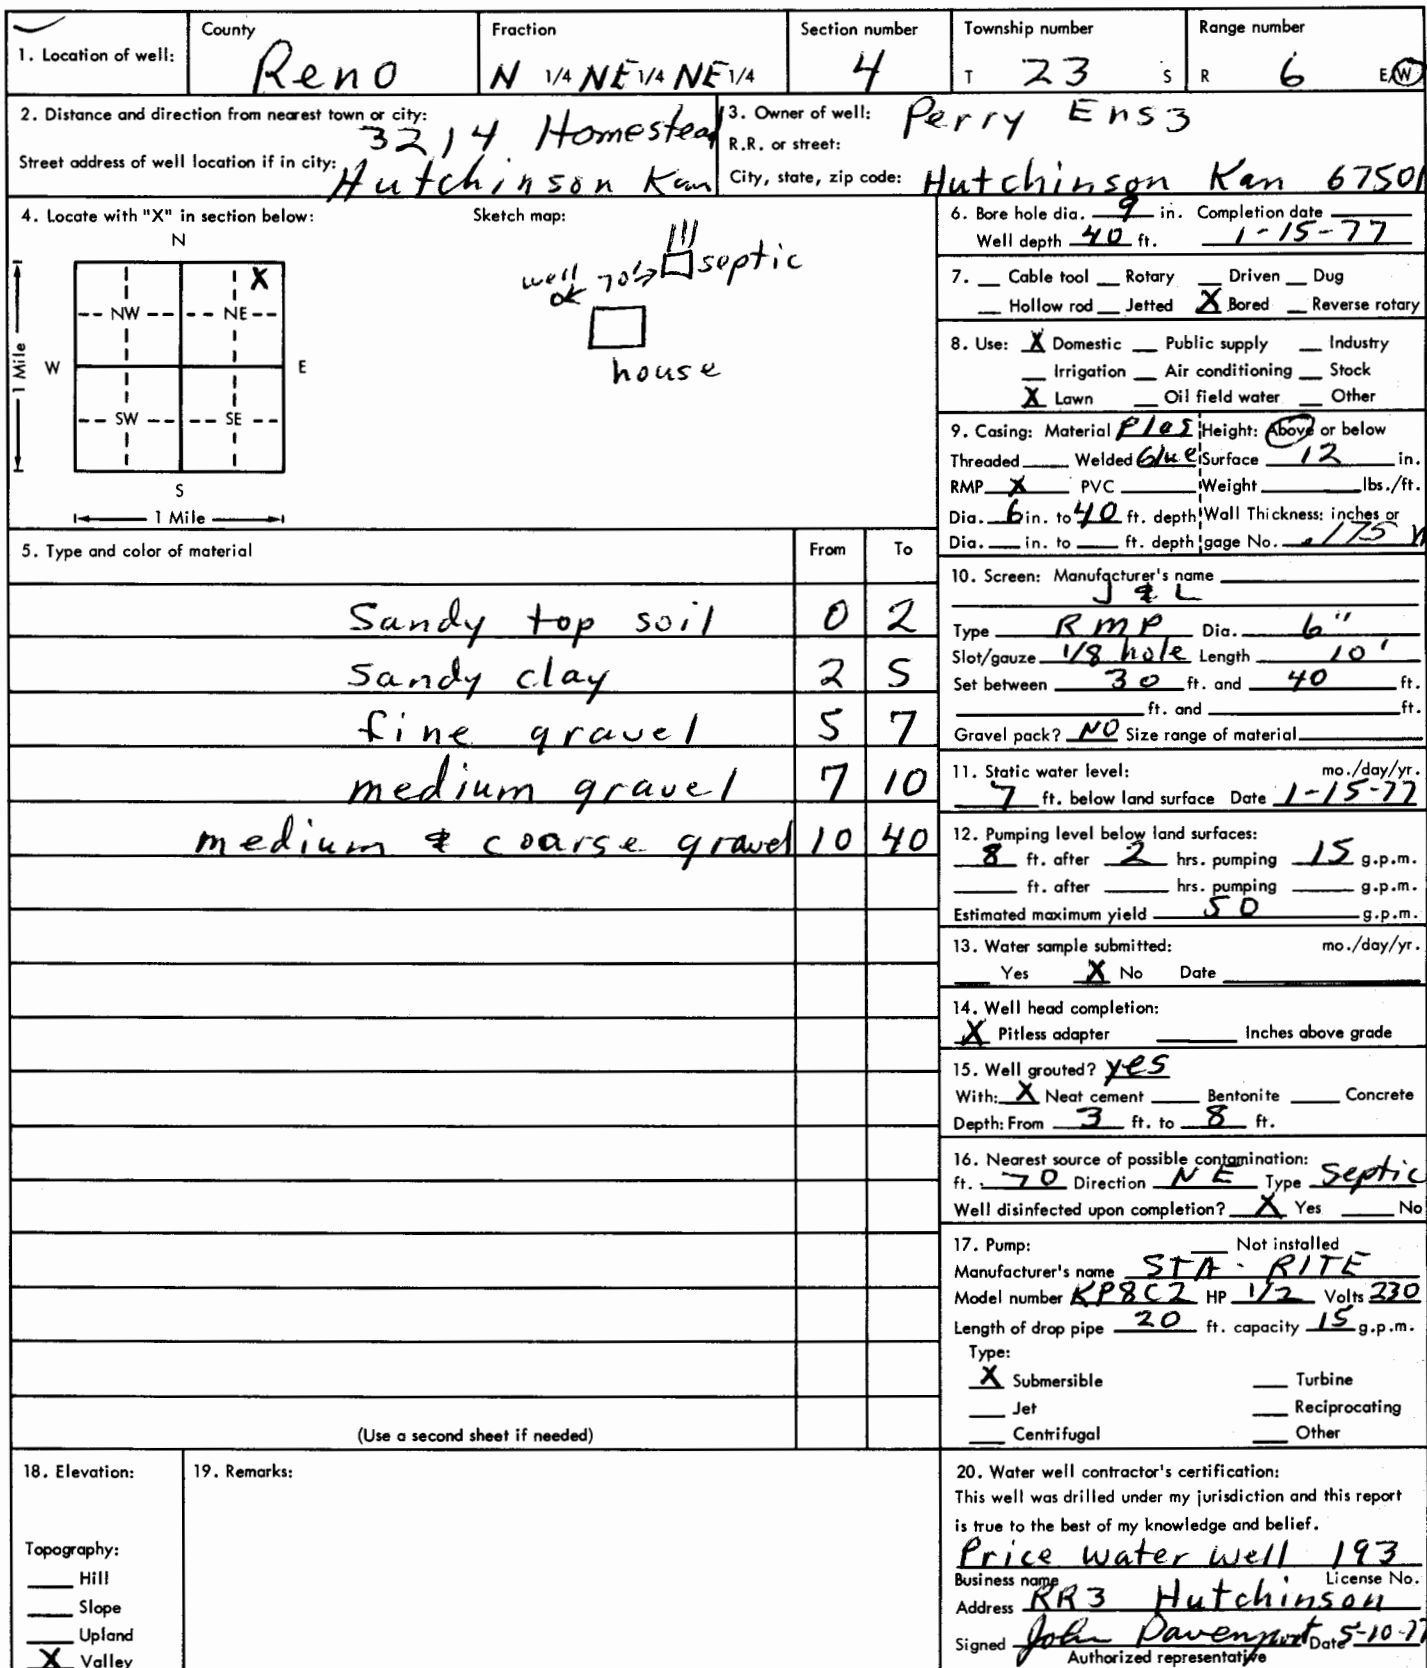 1. Location of well:
County
Reno
Fraction
N 1/4 NE 1/4 NE 1/4
Section number
4
Township number
T 23 S
Range number
R 6 E/W
2. Distance and direction from nearest town or city:
3214 Homestead
Street address of well location if in city:
Hutchinson Kan
3. Owner of well: Perry Ens3
R.R. or street:
City, state, zip code: Hutchinson Kan 67501
4. Locate with "X" in section below:
N
X
NW NE
W E
SW SE
S
1 Mile
1 Mile
Sketch map:
well 70' septic
house
5. Type and color of material From To
Sandy top soil 0 2
Sandy clay 2 5
fine gravel 5 7
medium gravel 7 10
medium & coarse gravel 10 40
(Use a second sheet if needed)
6. Bore hole dia. 9 in. Completion date
Well depth 40 ft. 1-15-77
7. __ Cable tool __ Rotary __ Driven __ Dug
__ Hollow rod __ Jetted X Bored __ Reverse rotary
8. Use: X Domestic __ Public supply __ Industry
__ Irrigation __ Air conditioning __ Stock
X Lawn __ Oil field water __ Other
9. Casing: Material Plas Height: Above or below
Threaded ___ Welded Glue Surface 12 in.
RMP X PVC ___ Weight ___ lbs./ft.
Dia. 6 in. to 40 ft. depth Wall Thickness: inches or
Dia. ___ in. to ___ ft. depth gage No. .175
10. Screen: Manufacturer's name
J & L
Type RMP Dia. 6"
Slot/gauze 1/8 hole Length 10'
Set between 30 ft. and 40 ft.
___ ft. and ___ ft.
Gravel pack? NO Size range of material
11. Static water level: mo./day/yr.
7 ft. below land surface Date 1-15-77
12. Pumping level below land surfaces:
8 ft. after 2 hrs. pumping 15 g.p.m.
___ ft. after ___ hrs. pumping ___ g.p.m.
Estimated maximum yield 50 g.p.m.
13. Water sample submitted: mo./day/yr.
__ Yes X No Date
14. Well head completion:
X Pitless adapter ___ Inches above grade
15. Well grouted? yes
With: X Neat cement ___ Bentonite ___ Concrete
Depth: From 3 ft. to 8 ft.
16. Nearest source of possible contamination:
ft. 70 Direction NE Type Septic
Well disinfected upon completion? X Yes ___ No
17. Pump: ___ Not installed
Manufacturer's name STA-RITE
Model number KP8C2 HP 1/2 Volts 230
Length of drop pipe 20 ft. capacity 15 g.p.m.
Type:
X Submersible ___ Turbine
___ Jet ___ Reciprocating
___ Centrifugal ___ Other
18. Elevation:
Topography:
___ Hill
___ Slope
___ Upland
X Valley
19. Remarks:
20. Water well contractor's certification:
This well was drilled under my jurisdiction and this report
is true to the best of my knowledge and belief.
Price Water Well 193
Business name License No.
Address RR3 Hutchinson
Signed John Davenport Date 5-10-77
Authorized representative